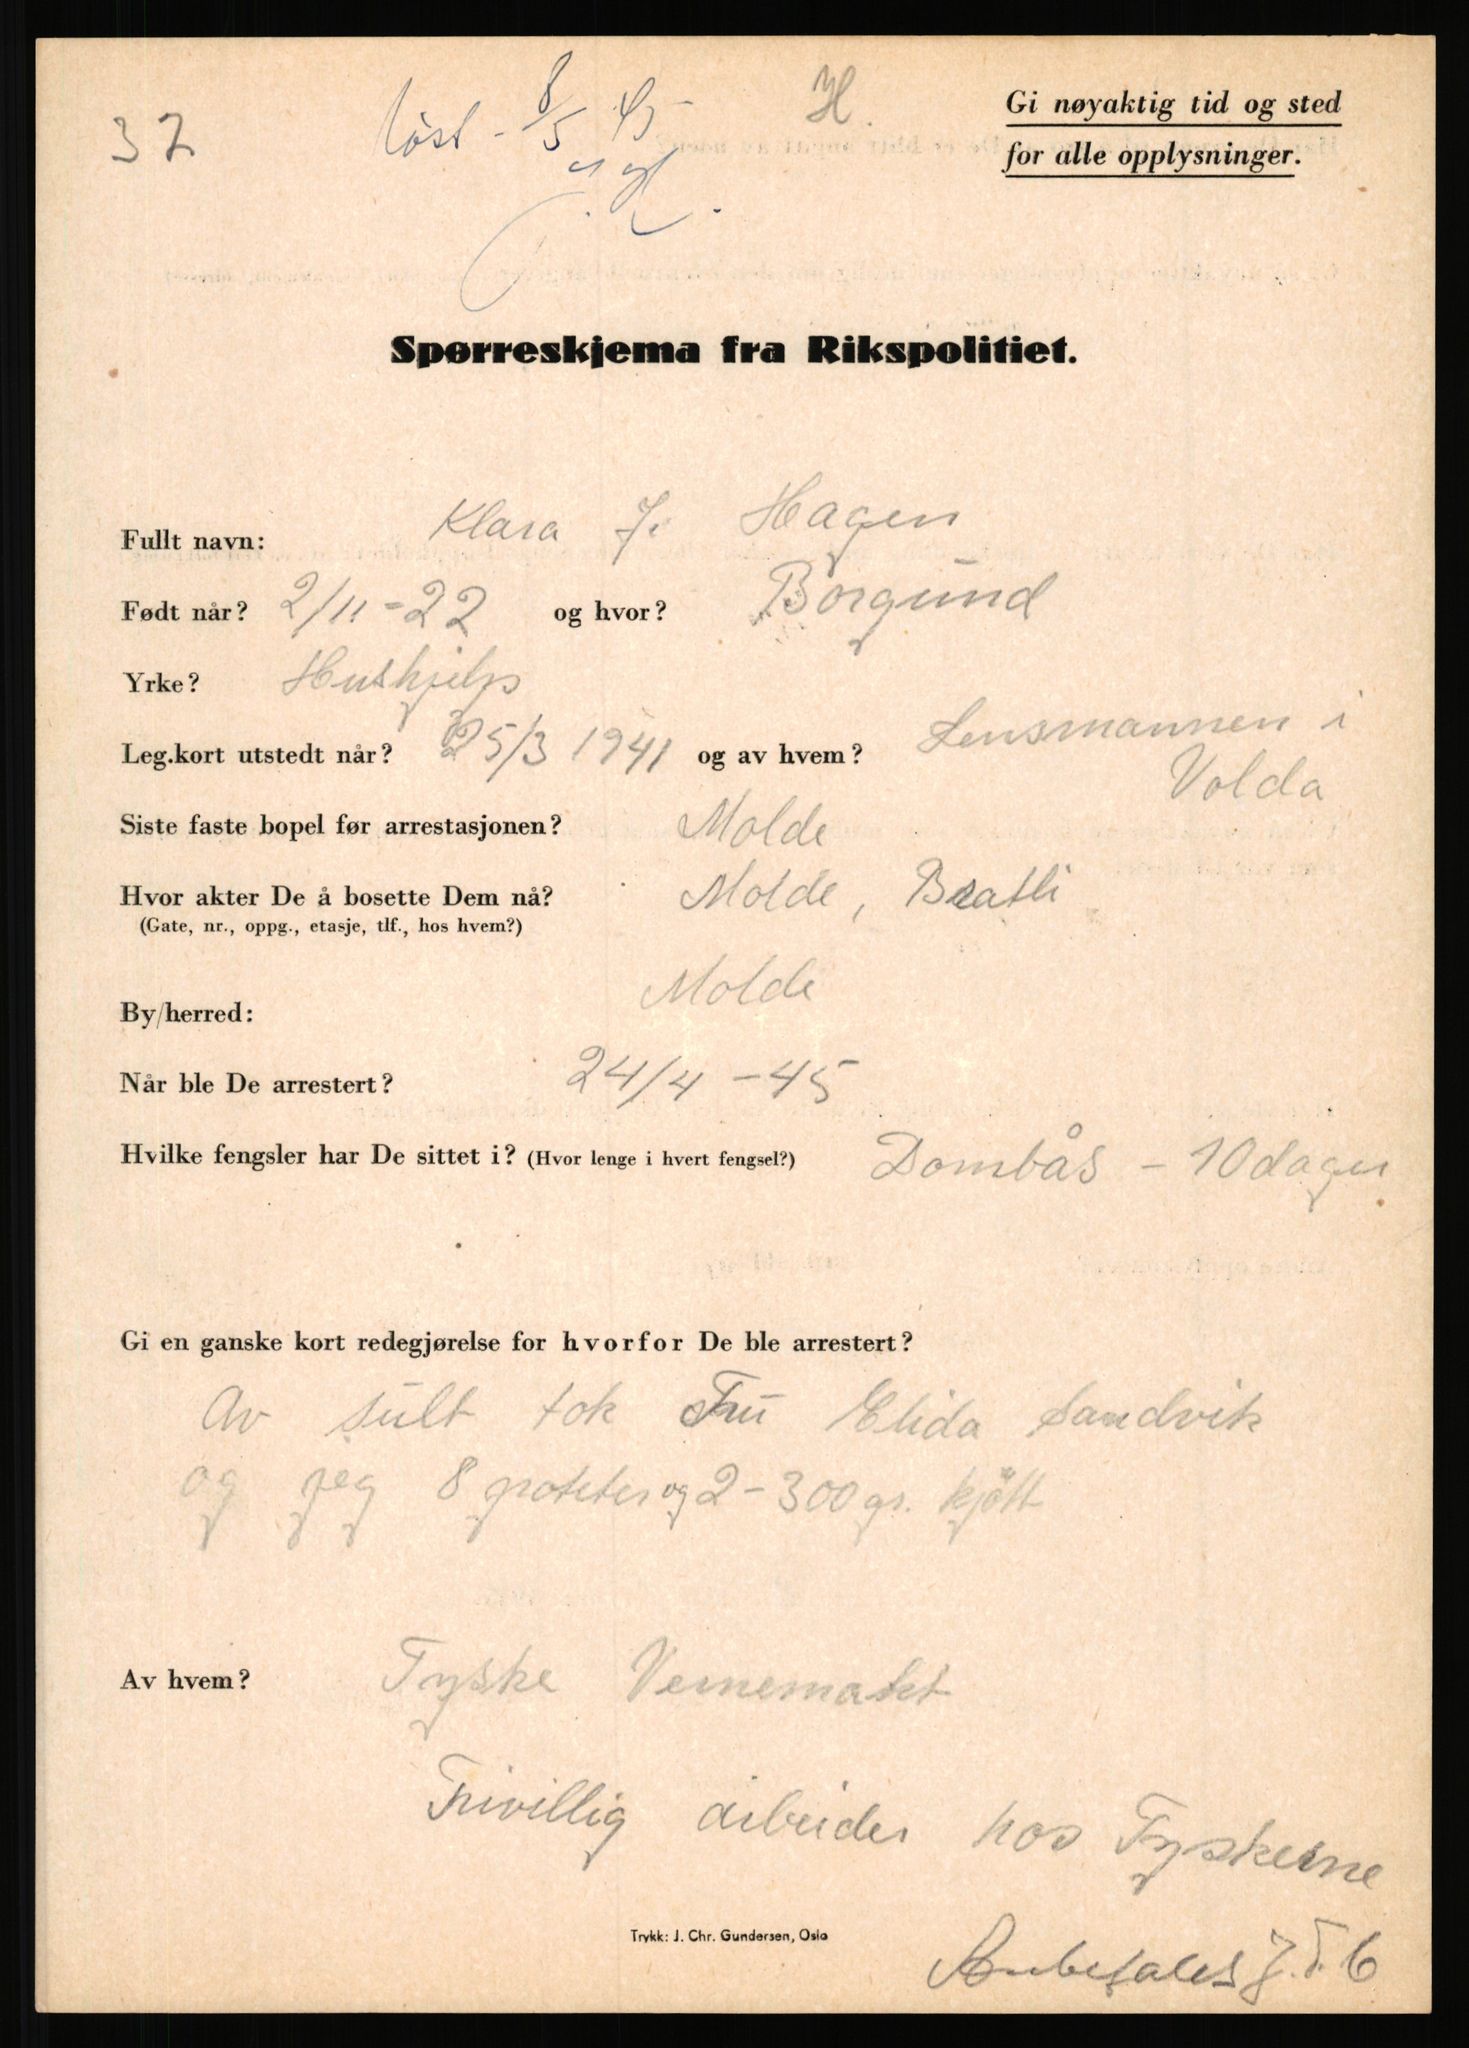 37
løst - 8/5 45 -
H.
Gi nøyaktig tid og sted
for alle opplysninger.
Spørreskjema fra Rikspolitiet.
Fullt navn: Klara J. Hagen
Født når? 2/11-22 og hvor? Borgund
Yrke? Hushjelp
Leg.kort utstedt når? 25/3 1941 og av hvem? Lensmannen i
Volda
Siste faste bopel før arrestasjonen? Molde
Hvor akter De å bosette Dem nå? Molde, Bratli
(Gate, nr., oppg., etasje, tlf., hos hvem?)
By/herred: Molde
Når ble De arrestert? 24/4 -45
Hvilke fengsler har De sittet i? (Hvor lenge i hvert fengsel?) Dombås - 10 dager
Gi en ganske kort redegjørelse for hvorfor De ble arrestert?
Av sult tok Fru Elida Sandvik
og jeg 8 poteter og 2-300 gr. kjøtt
Av hvem? Tyske Vernemakt
Frivillig arbeider hos Tyskerne
Trykk: J. Chr. Gundersen, Oslo
Anbefales